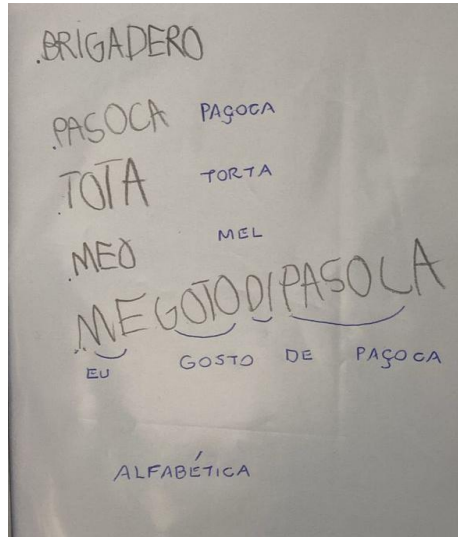 .BRIGADERO
.PASOCA PAÇOCA
.TOTA TORTA
.MEO MEL
.ME GOTO DI PASOCA
EU GOSTO DE PAÇOCA
ALFABÉTICA